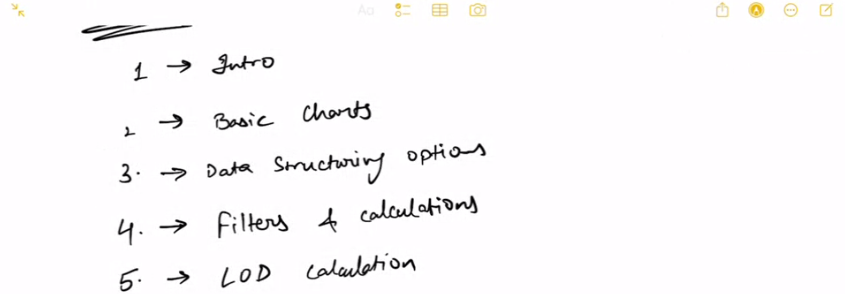 1 → Intro
2 → Basic Charts
3. → Data Structuring options
4. → Filters & calculations
5. → LOD calculation